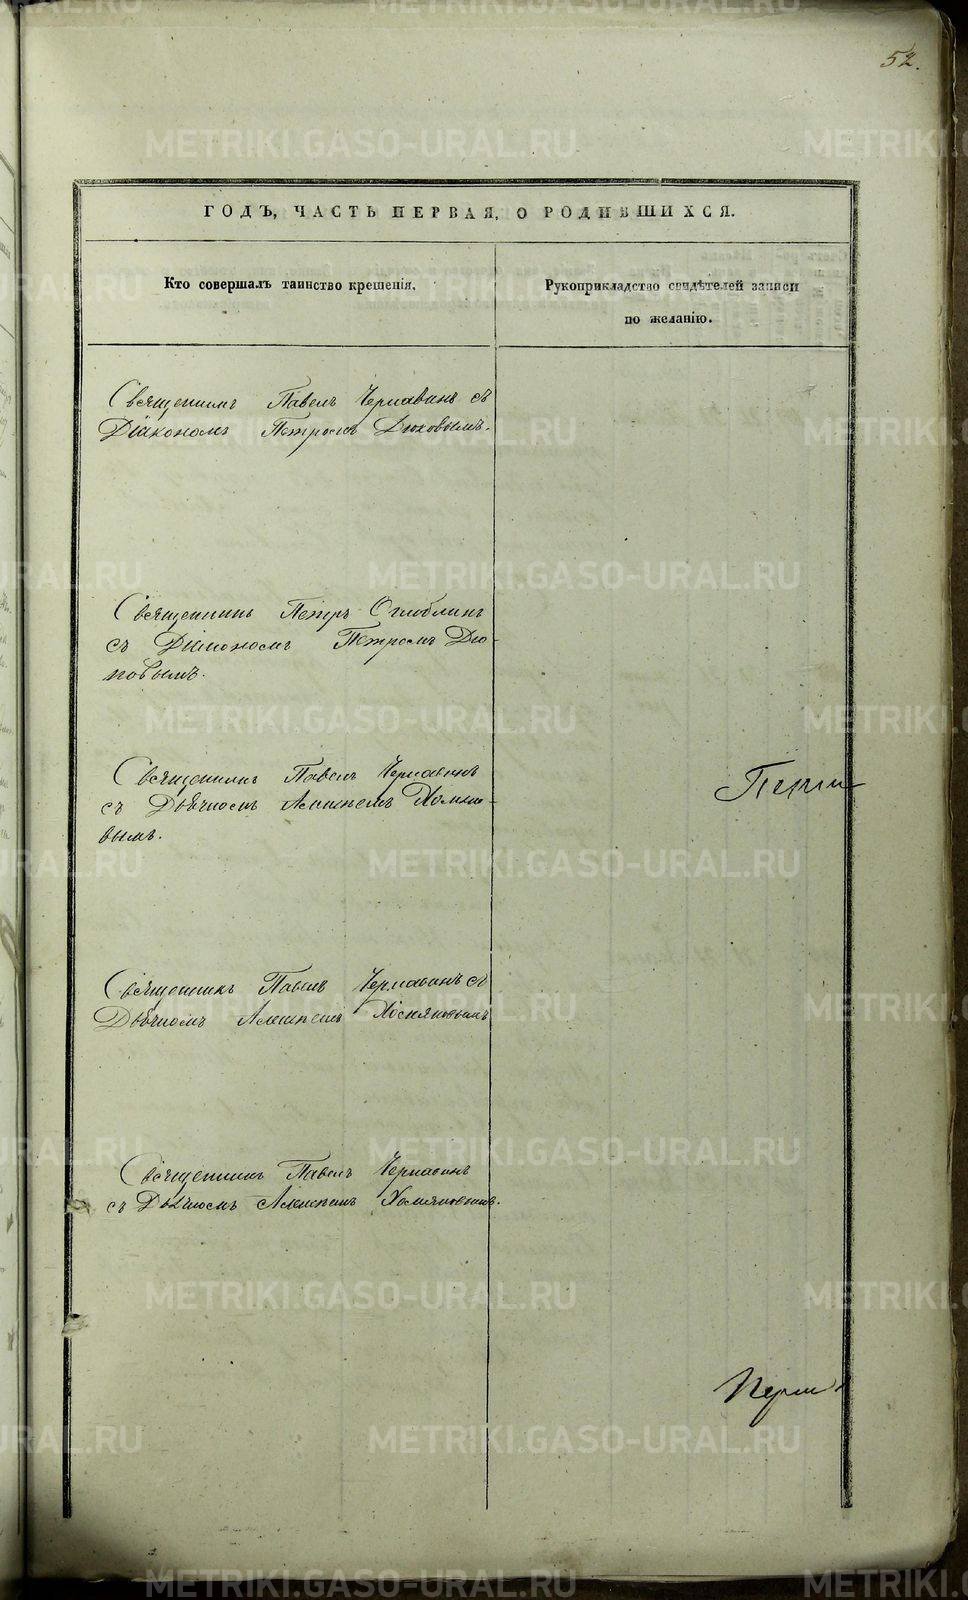 52.
ГОДЪ, ЧАСТЬ ПЕРВАЯ, О РОДИВШИХСЯ.
Кто совершалъ таинство крещенія.
Рукоприкладство свидѣтелей записи
по желанію.
Священникъ Павелъ Чернавинъ съ
Діакономъ Петромъ Дюковымъ.
Священникъ Петръ Оглоблинъ
съ Діакономъ Петромъ Дю-
ковымъ.
Священникъ Павелъ Чернавинъ
съ Дьячкомъ Алексѣемъ Хомяко-
вымъ.
Священникъ Павелъ Чернавинъ съ
Дьячкомъ Алексѣемъ Хомяковымъ
Священникъ Павелъ Чернавинъ
съ Дьячкомъ Алексѣемъ Хомяковымъ.
METRIKI.GASO-URAL.RU